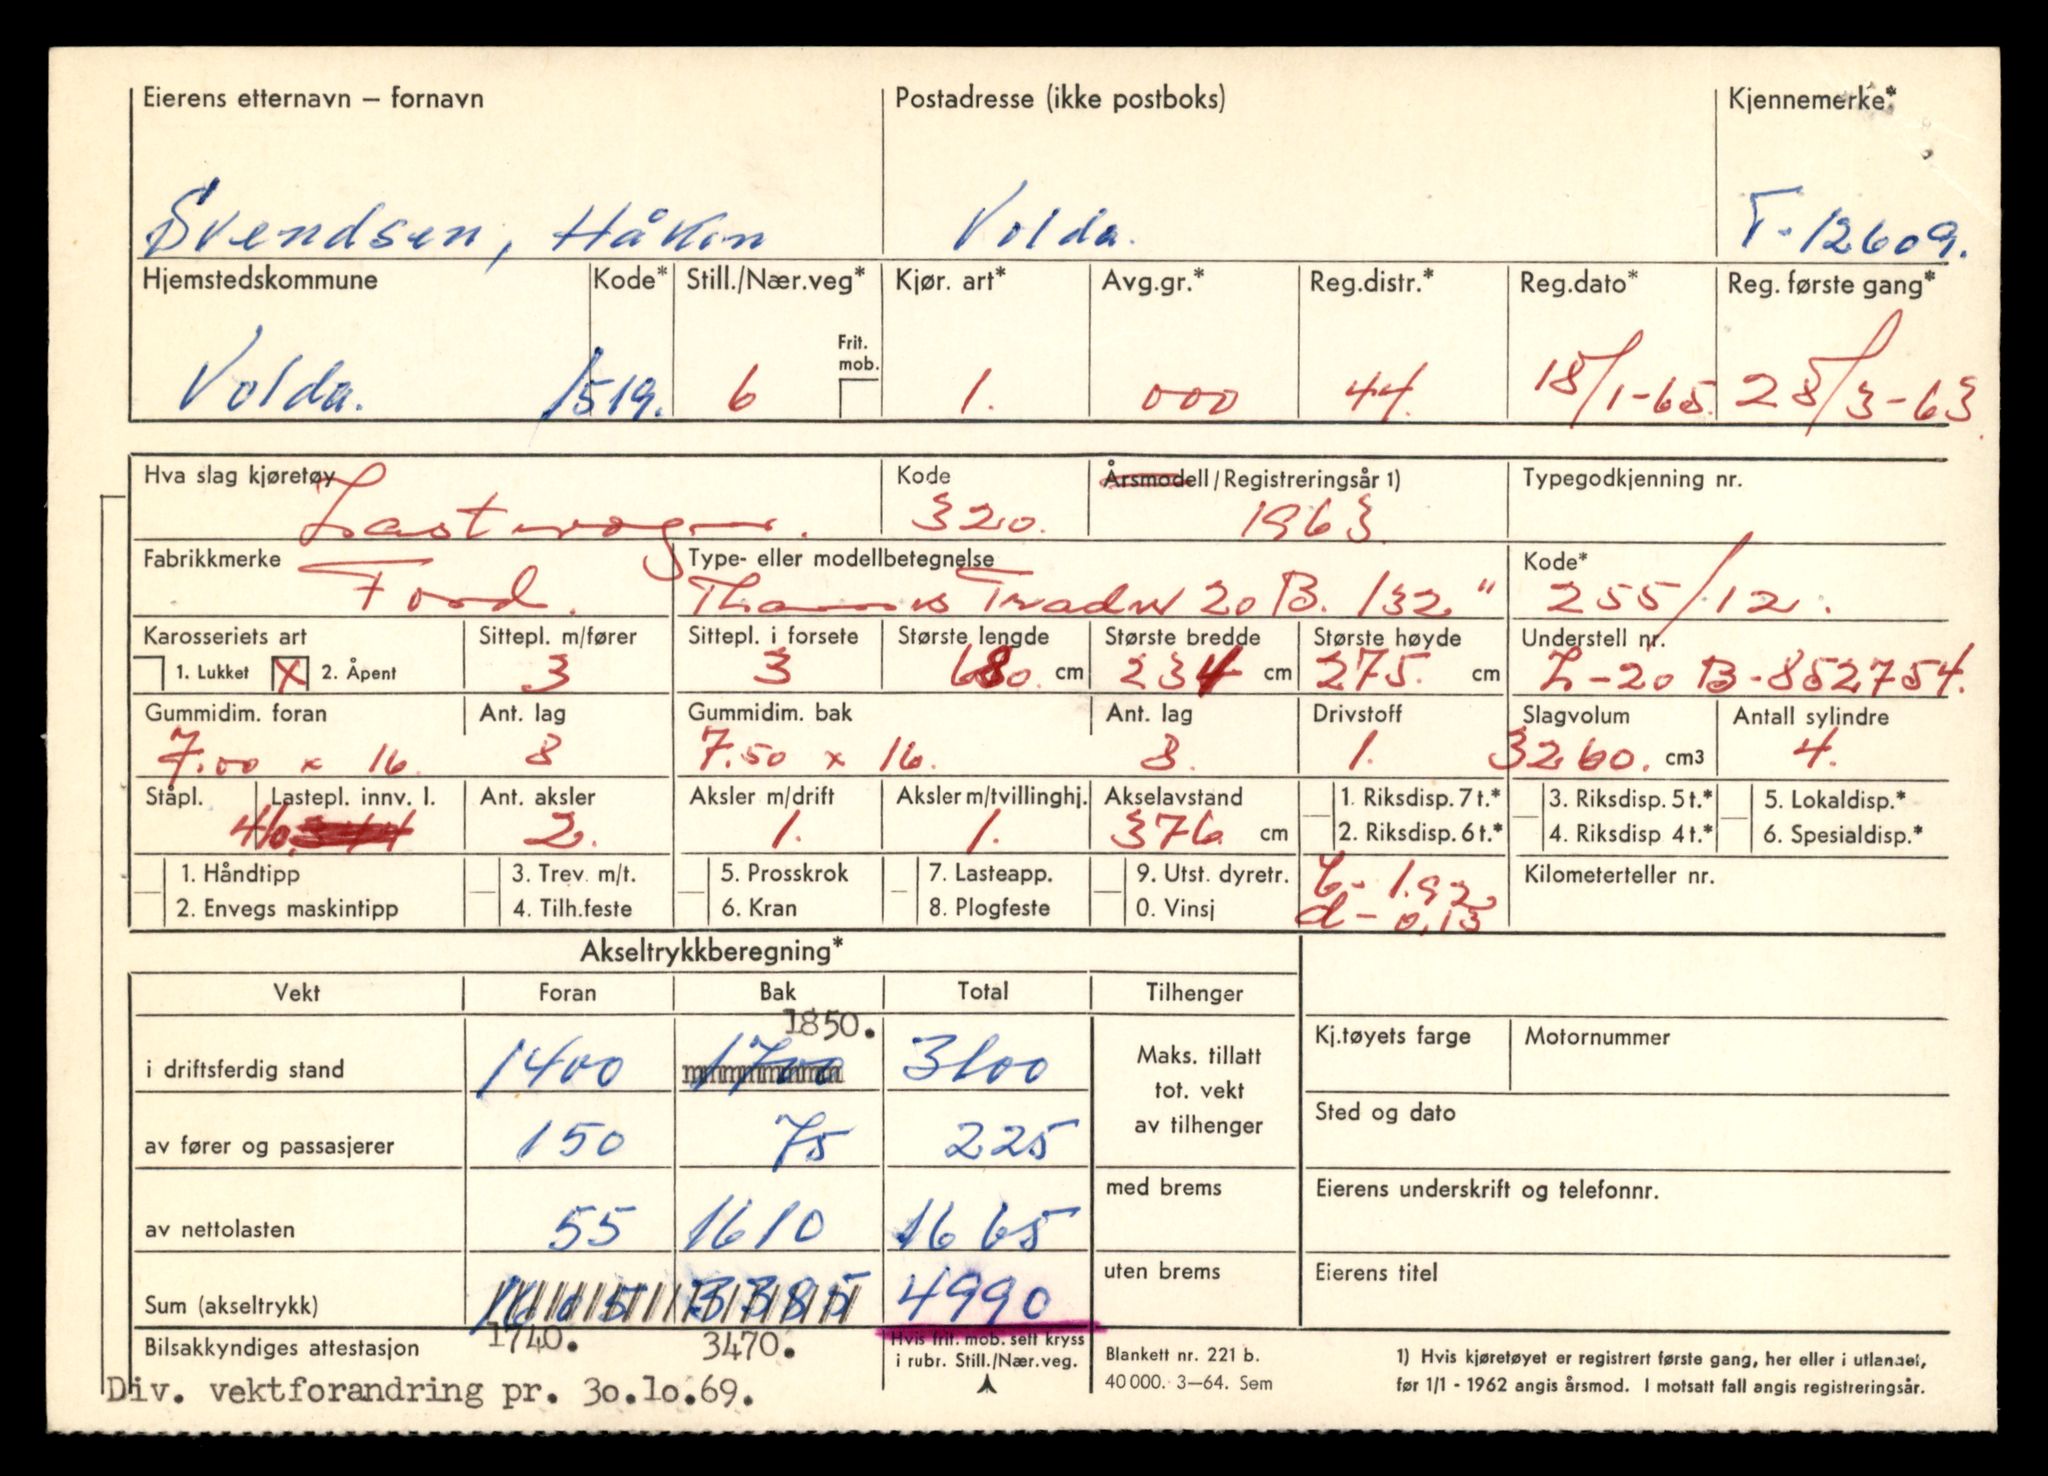 Eierens etternavn – fornavn Postadresse (ikke postboks) Kjennemerke*
Svendsen, Håkon Volda. T-12609.
Hjemstedskommune Kode* Still./Nær.veg* Kjør. art* Avg.gr.* Reg.distr.* Reg.dato* Reg. første gang*
Frit. mob.
Volda. 1519. 6 1. 000 44. 18/1-65. 28/3-63
Hva slag kjøretøy Kode Årsmodell/Registreringsår 1) Typegodkjenning nr.
Lastevogn. 320. 1963.
Fabrikkmerke Type- eller modellbetegnelse Kode*
Ford. Thames Trader 20 B. 132" 255/12.
Karosseriets art Sittepl. m/fører Sittepl. i forsete Største lengde Største bredde Største høyde Understell nr.
1. Lukket X 2. Åpent 3 3 680. cm 234 cm 275. cm L-20 B-852754.
Gummidim. foran Ant. lag Gummidim. bak Ant. lag Drivstoff Slagvolum Antall sylindre
7.00 x 16. 8 7.50 x 16. 8. 1. 3260. cm3 4.
Ståpl. Lastepl. innv. l. Ant. aksler Aksler m/drift Aksler m/tvillinghj. Akselavstand 1. Riksdisp. 7 t.* 3. Riksdisp. 5 t.* 5. Lokaldisp.*
2. 1. 1. 376. cm 2. Riksdisp. 6 t.* 4. Riksdisp 4 t.* 6. Spesialdisp.*
1. Håndtipp 3. Trev. m/t. 5. Prosskrok 7. Lasteapp. 9. Utst. dyretr. Kilometerteller nr.
2. Envegs maskintipp 4. Tilh.feste 6. Kran 8. Plogfeste 0. Vinsj
- 1.92
d - 0,13
Akseltrykkberegning*
Vekt Foran Bak Total Tilhenger
1850.
i driftsferdig stand 1400 1700 3100 Maks. tillatt tot. vekt av tilhenger Kj.tøyets farge Motornummer
av fører og passasjerer 150 75 225 Sted og dato
av nettolasten 55 1610 1665 med brems Eierens underskrift og telefonnr.
Sum (akseltrykk) 1605 3385 4990 uten brems Eierens titel
Bilsakkyndiges attestasjon 1740. 3470. Hvis frit. mob. sett kryss i rubr. Still./Nær.veg. Blankett nr. 221 b. 1) Hvis kjøretøyet er registrert første gang, her eller i utlandet,
40 000. 3–64. Sem før 1/1 - 1962 angis årsmod. I motsatt fall angis registreringsår.
Div. vektforandring pr. 30.10.69.